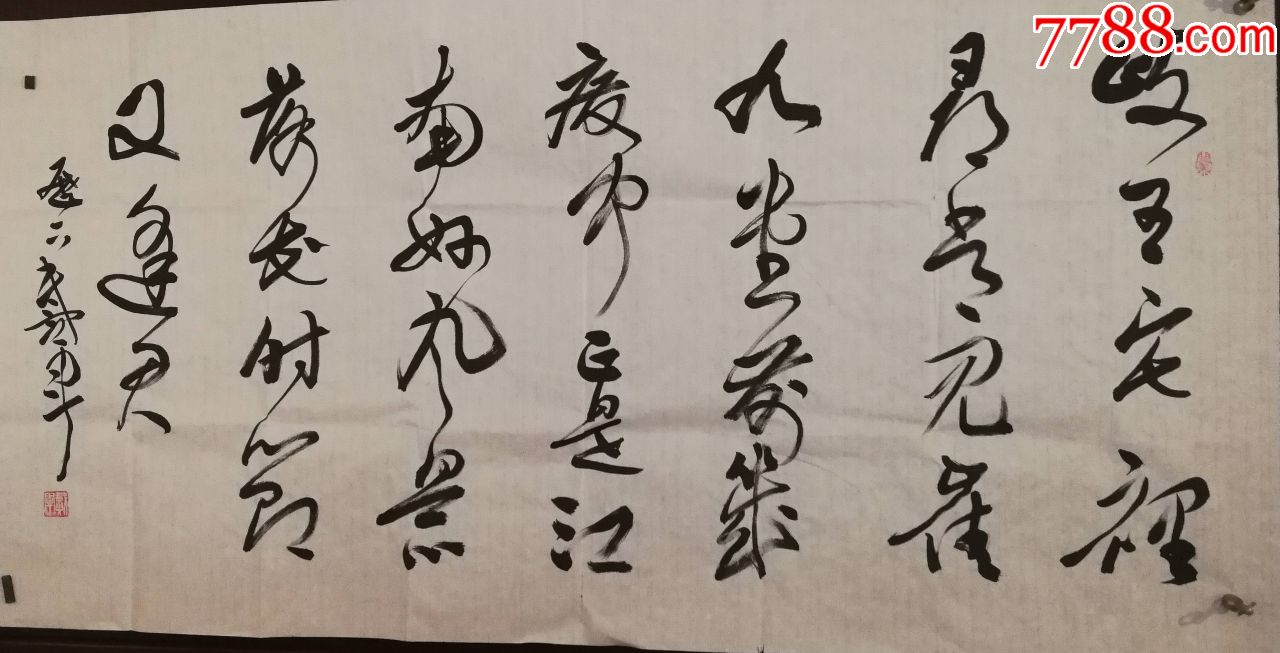 7788.com
岐王宅裡
尋常見崔
九堂前幾
度聞正是江
南好風景
落花时節
又逢君